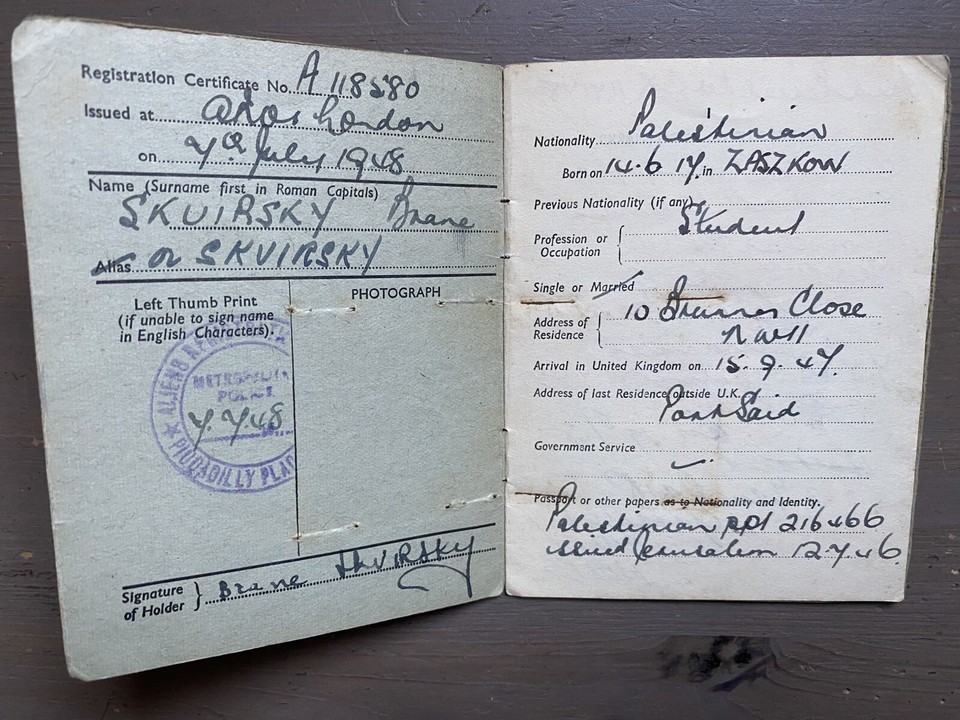 Registration Certificate No. A 118580
Issued at ARO London
on 7th July 1948
Name (Surname first in Roman Capitals)
SKUIRSKY Brane
Alias or SKVIRSKY
Left Thumb Print
(if unable to sign name
in English Characters).
PHOTOGRAPH
ALIENS
METROPOLITAN
POLICE
7.7.48
PICCADILLY PLACE
Signature
of Holder } Brane SKVIRSKY
Nationality Palestinian
Born on 14.6.17. in ZASZKOW
Previous Nationality (if any)
Profession or
Occupation { Student
Single or Married
Address of
Residence { 10 Close
NW11
Arrival in United Kingdom on 15.9.47.
Address of last Residence outside U.K.
Port Said
Government Service
Passport or other papers as to Nationality and Identity.
Palestinian ppt 216466
issued Jerusalem 12.7.46.